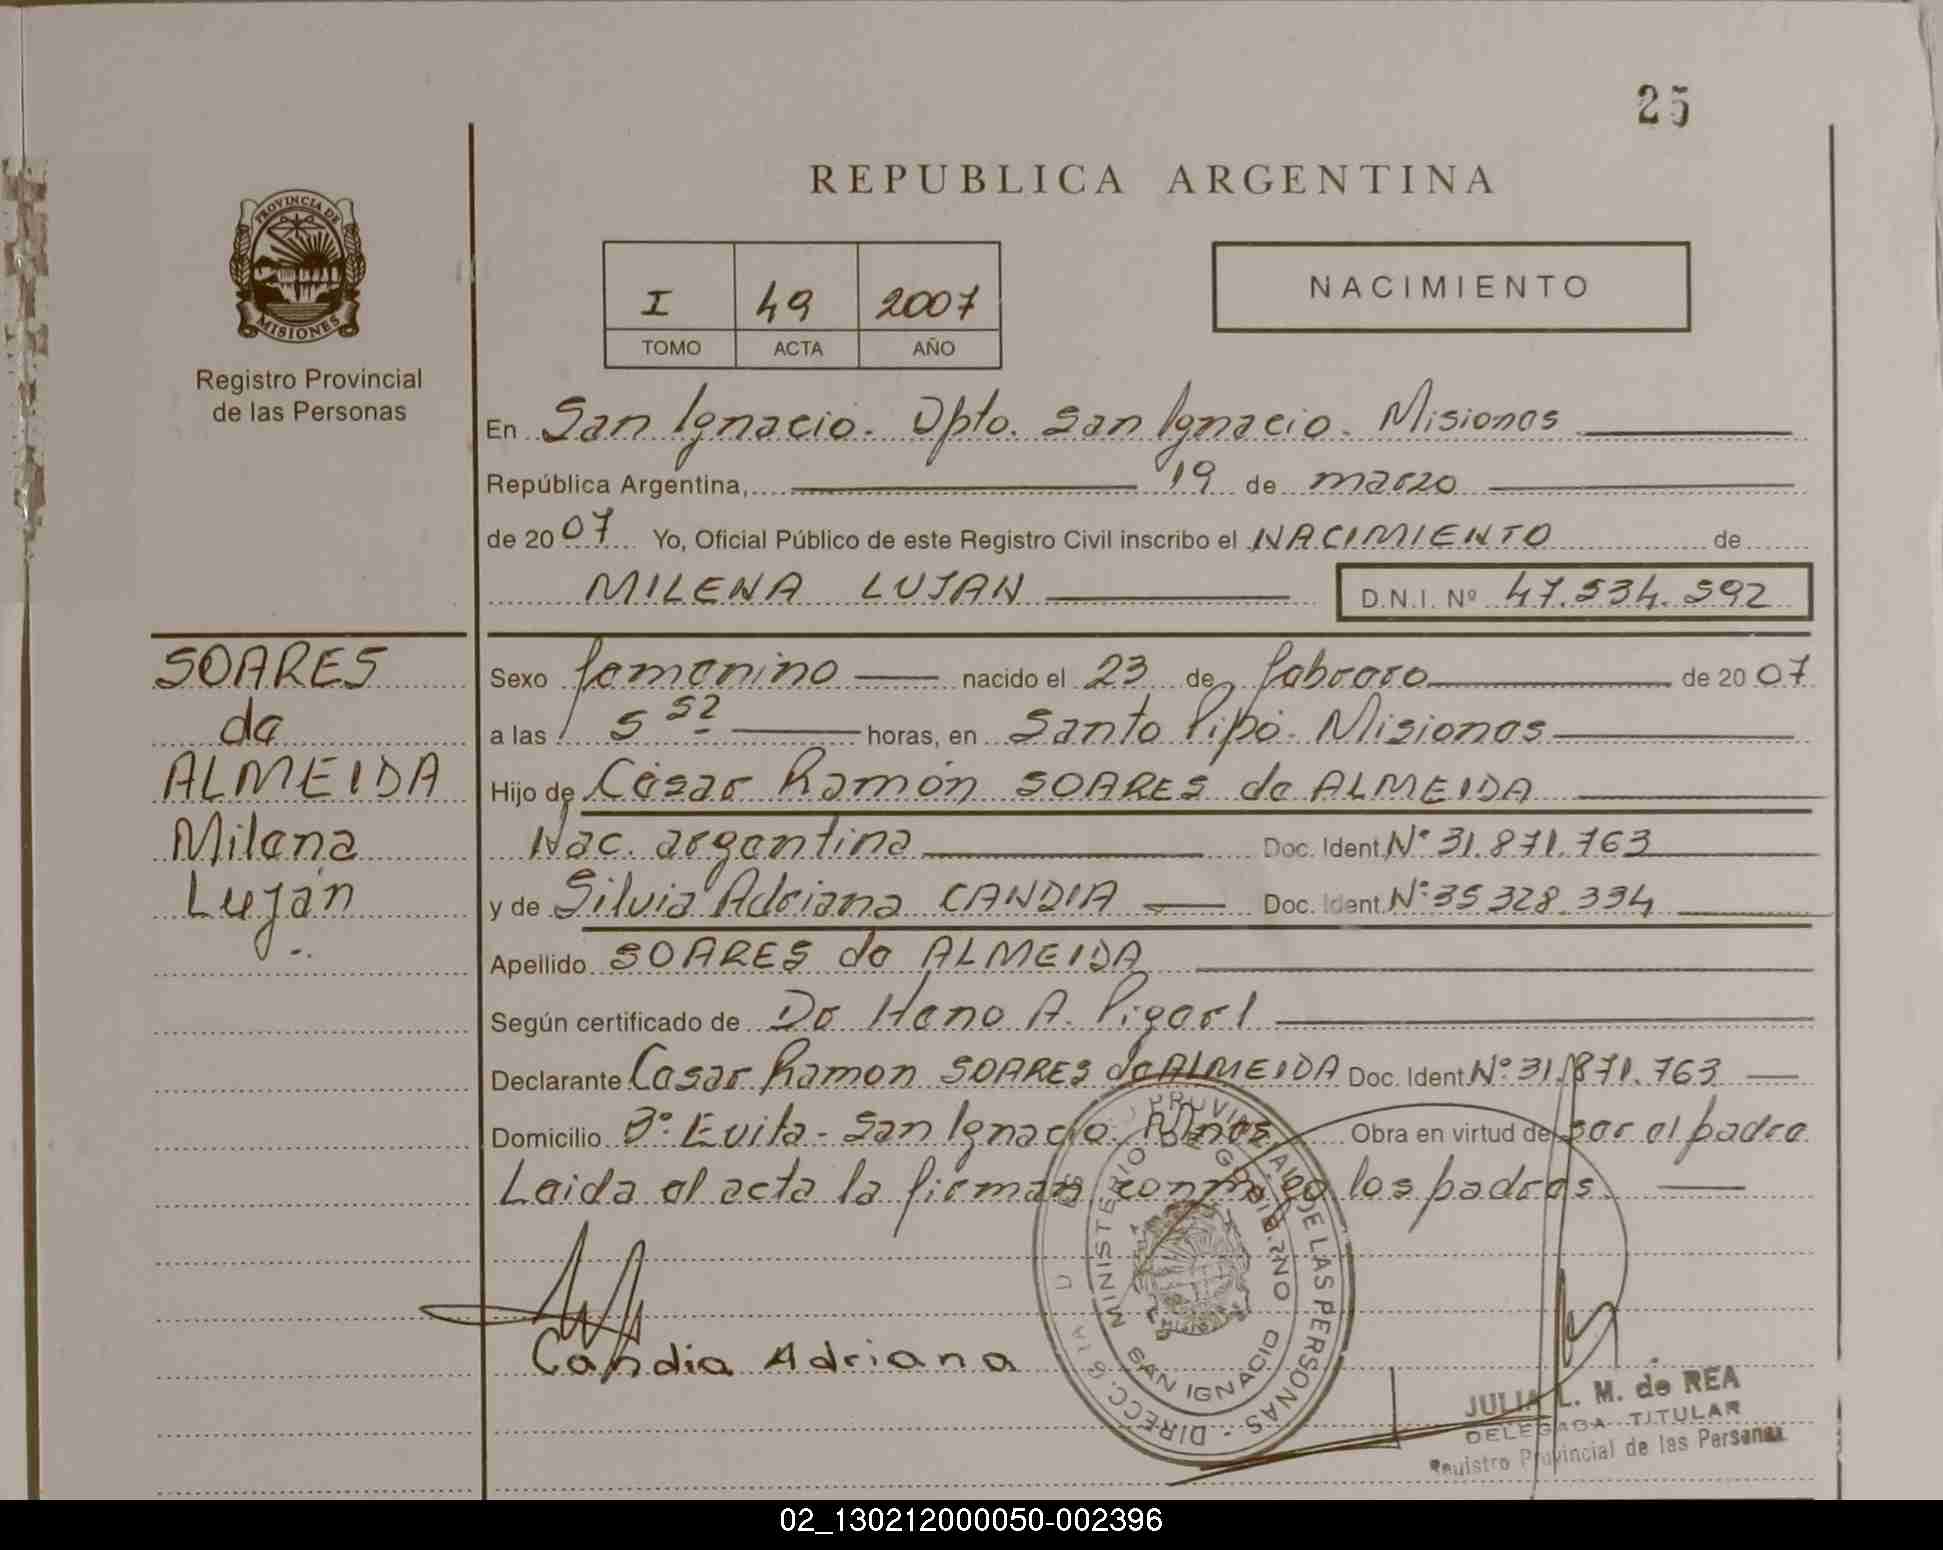 25
REPUBLICA ARGENTINA
PROVINCIA DE
MISIONES
Registro Provincial
de las Personas
I 49 2007
TOMO ACTA AÑO
NACIMIENTO
En San Ignacio. Dpto. San Ignacio. Misiones
República Argentina, 19 de marzo
de 2007 Yo, Oficial Público de este Registro Civil inscribo el NACIMIENTO de
MILENA LUJAN D.N.I. Nº 47.534.592
SOARES
de
ALMEIDA
Milena
Luján
Sexo femenino nacido el 23 de febrero de 2007
a las 5 52 horas, en Santo Pipó. Misiones
Hijo de César Ramón SOARES de ALMEIDA
Nac. argentina Doc. Ident. Nº 31.871.763
y de Silvia Adriana CANDIA Doc. Ident. Nº 35 328.334
Apellido SOARES de ALMEIDA
Según certificado de Dr A.
Declarante Cesar Ramon SOARES de ALMEIDA Doc. Ident. Nº 31.871.763
Domicilio Bº Evita - San Ignacio. Mnes Obra en virtud de ser el padre
Leida el acta la firman conmigo los padres.
Candia Adriana
DIRECC. PROVINCIAL DE LAS PERSONAS
MINISTERIO DE GOBIERNO
SAN IGNACIO
JULIA L. M. de REA
DELEGADA TITULAR
Registro Provincial de las Personas
02_130212000050-002396